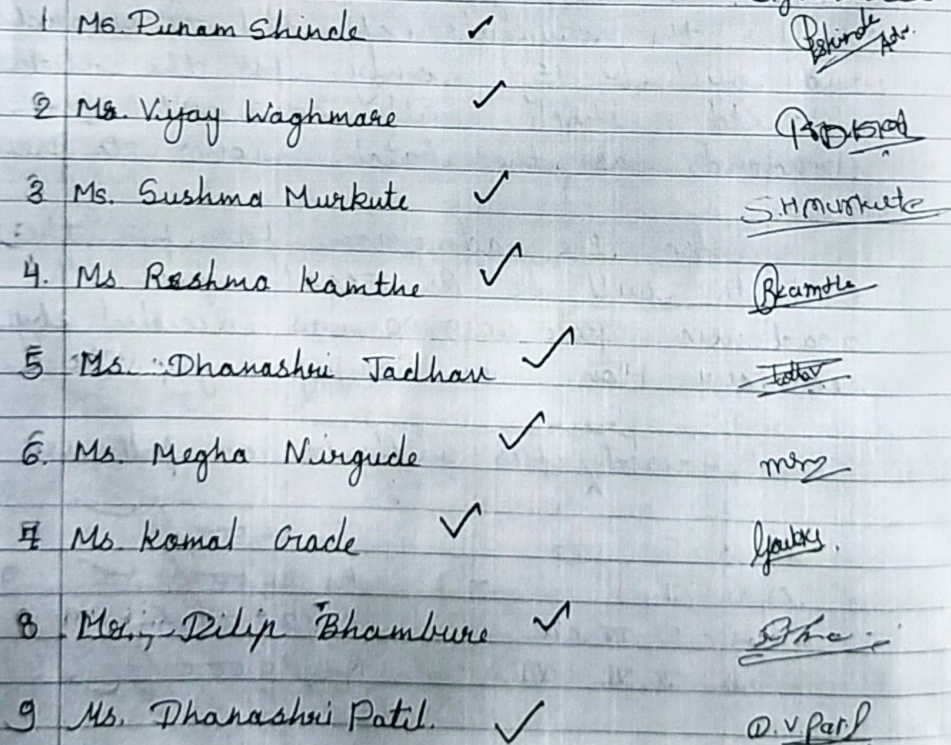 1 Ms. Punam Shinde ✓ Pshinde Adv.
2 Mr. Vijay Waghmare ✓
3 Ms. Sushma Murkute ✓ S.H murkute
4. Ms Reshma Kamthe ✓ Rkamthe
5 Ms. Dhanashri Jadhav ✓
6. Ms. Megha Nirgude ✓
7 Ms. Komal Gade ✓
8 Mr. Dilip Bhambure ✓
9 Ms. Dhanashri Patil. ✓ D.V. Patil